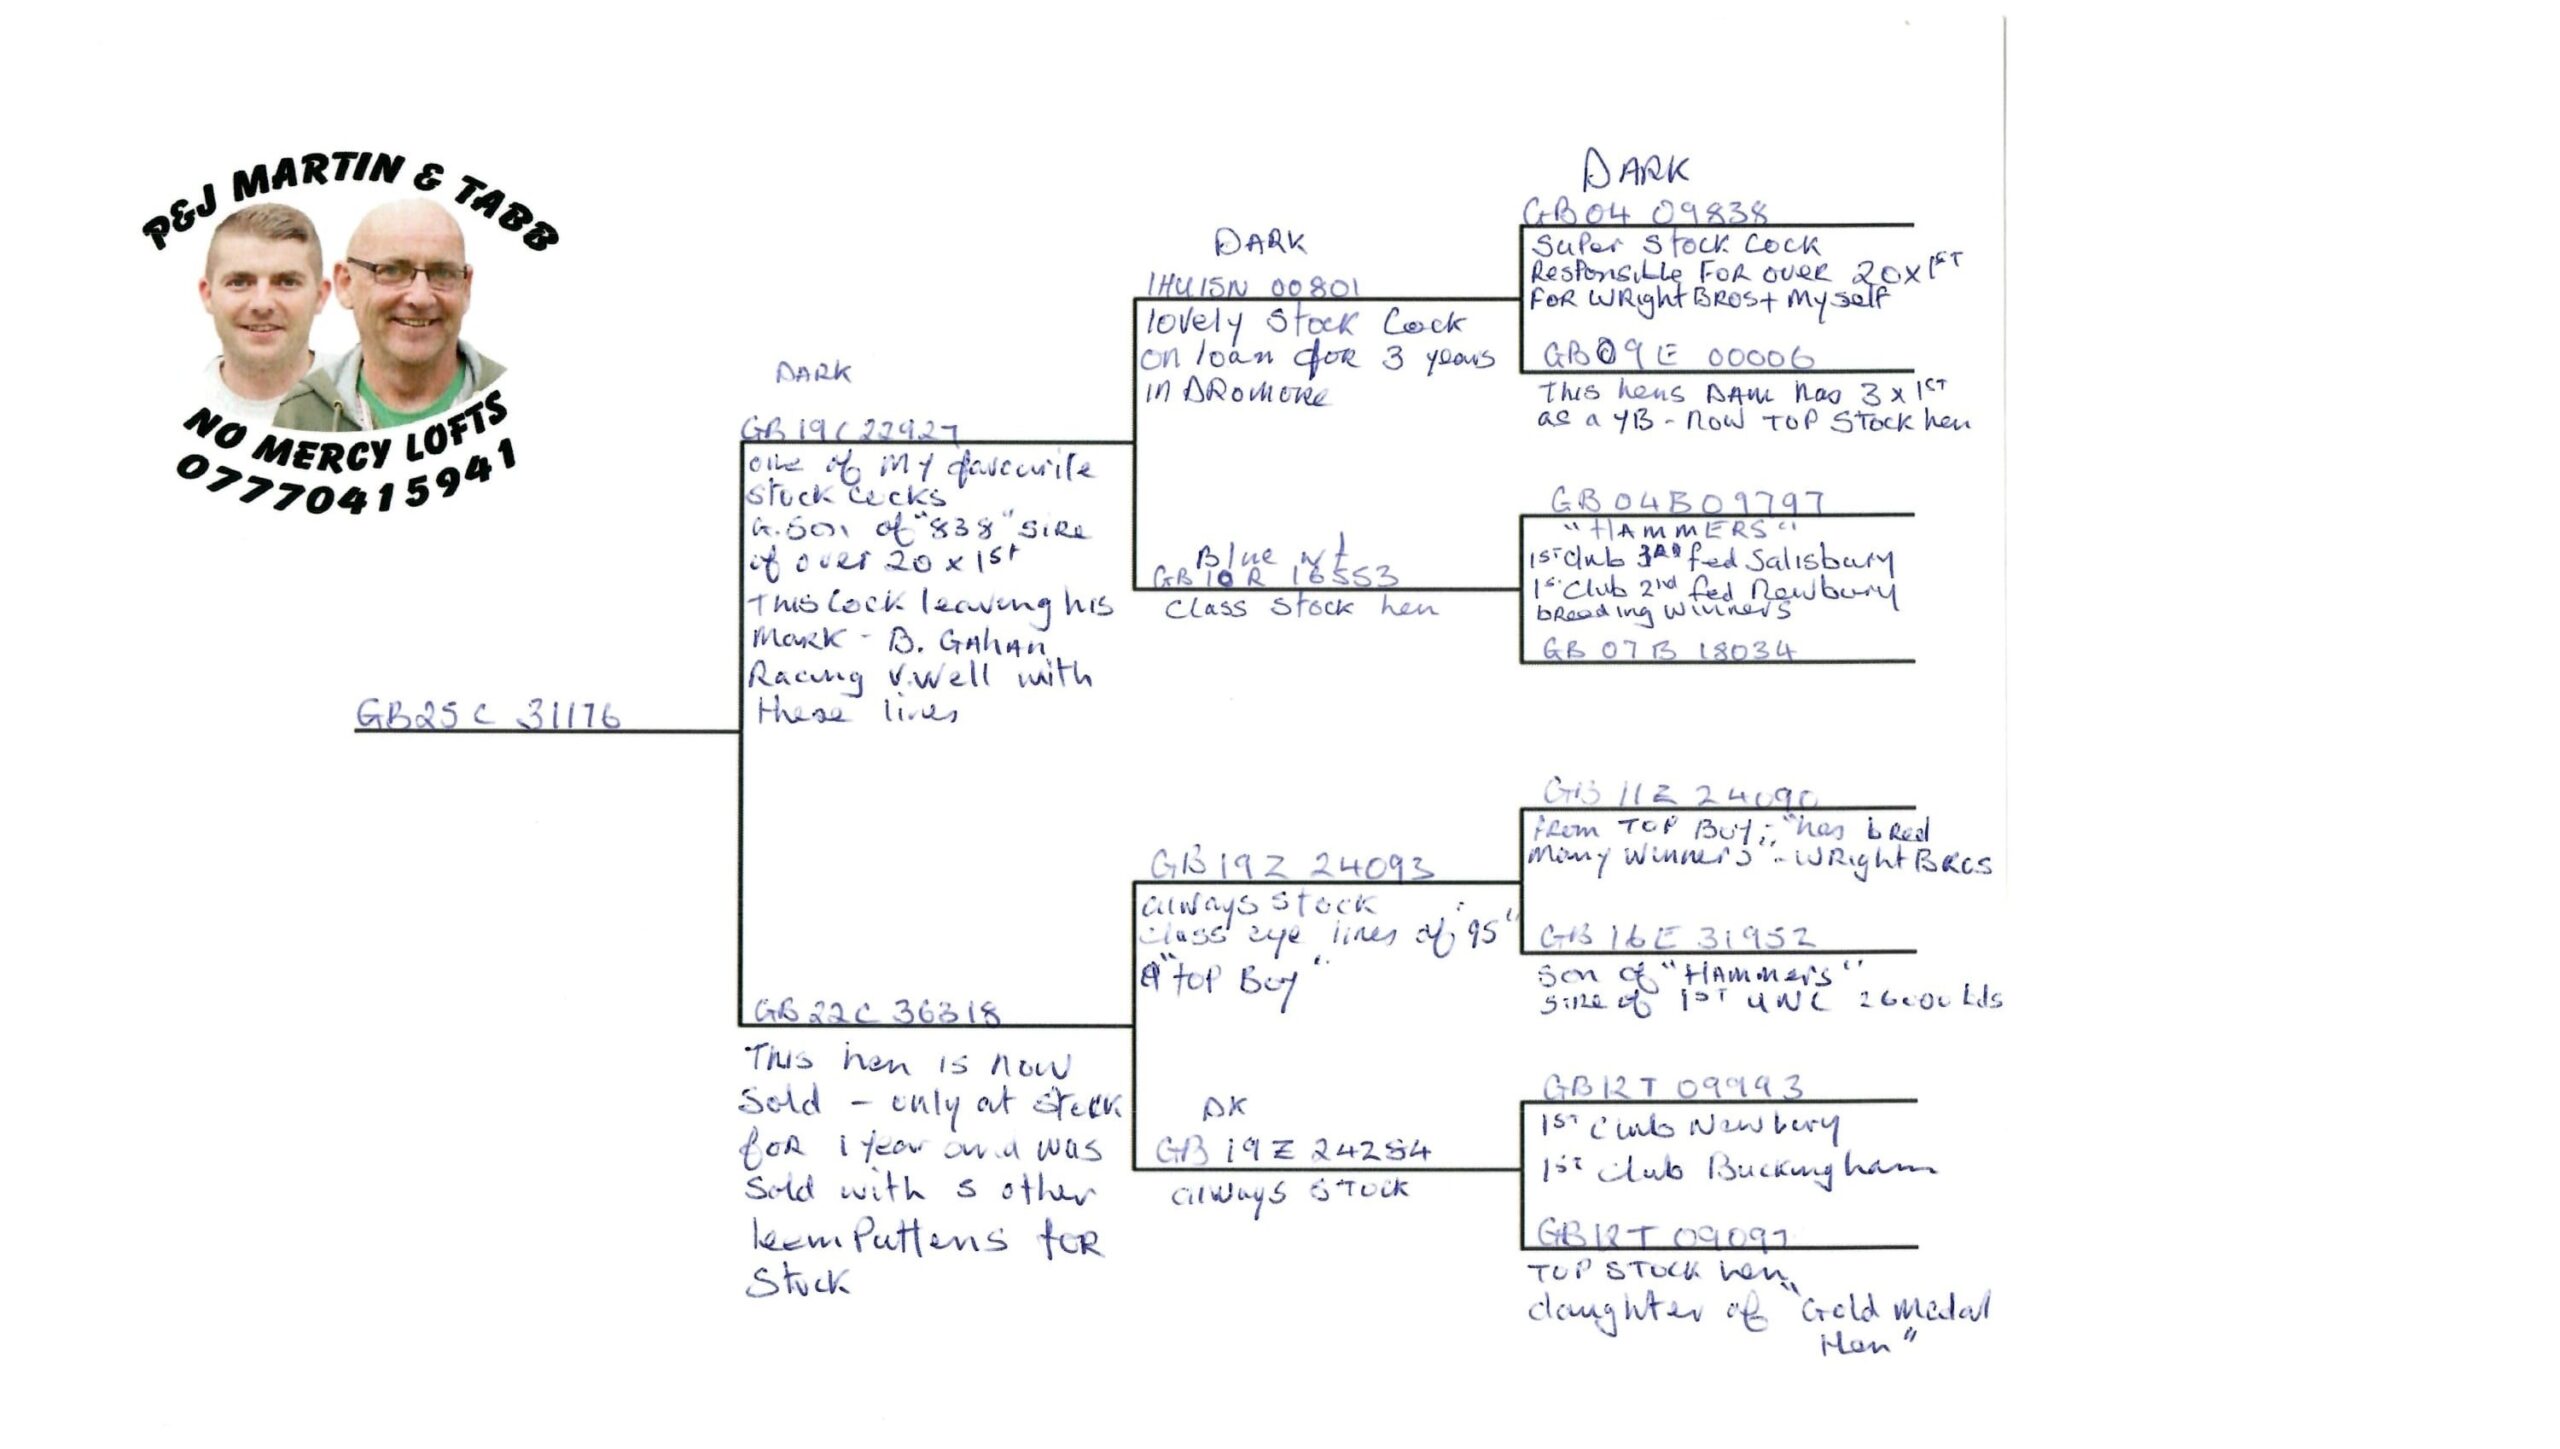 P&J MARTIN & TABB
NO MERCY LOFTS
07770415941
GB25C 31176
DARK
GB19C22927
one of My favourite
stock cocks
G.Son of "838" sire
of over 20 x 1st
This Cock leaving his
Mark - B. GAHAN
Racing V.Well with
these lines
GB22C 36318
This hen is now
Sold - only at stock
for 1 year and was
Sold with 5 other
leemPuttens for
Stock
DARK
IHU15N 00801
lovely Stock Cock
on loan for 3 years
in DROMORE
Blue wf
GB10R 16553
Class Stock hen
GB 19Z 24093
always stock
class eye lines of "95"
& "TOP Boy"
DK
GB 19Z 24254
always STOCK
DARK
GB04 09838
Super Stock Cock
Responsible FOR over 20x1ST
FOR WRight BROS + Myself
GB09E 00006
This hens DAM has 3 x 1ST
as a YB - now TOP STOCK hen
GB04B09797
"HAMMERS"
1ST Club 3RD fed Salisbury
1st Club 2nd fed Newbury
breeding winners
GB 07B 18034
GB 11Z 24090
From TOP Boy; "has bred
Many Winners" - WRight BROS
GB 16E 31952
Son of "HAMMERS"
Sire of 1ST UNC 26000 bds
GB12T 09993
1ST Club Newbury
1ST Club Buckingham
GB12T 09097
TOP STOCK hen
daughter of "Gold Medal
Hen"